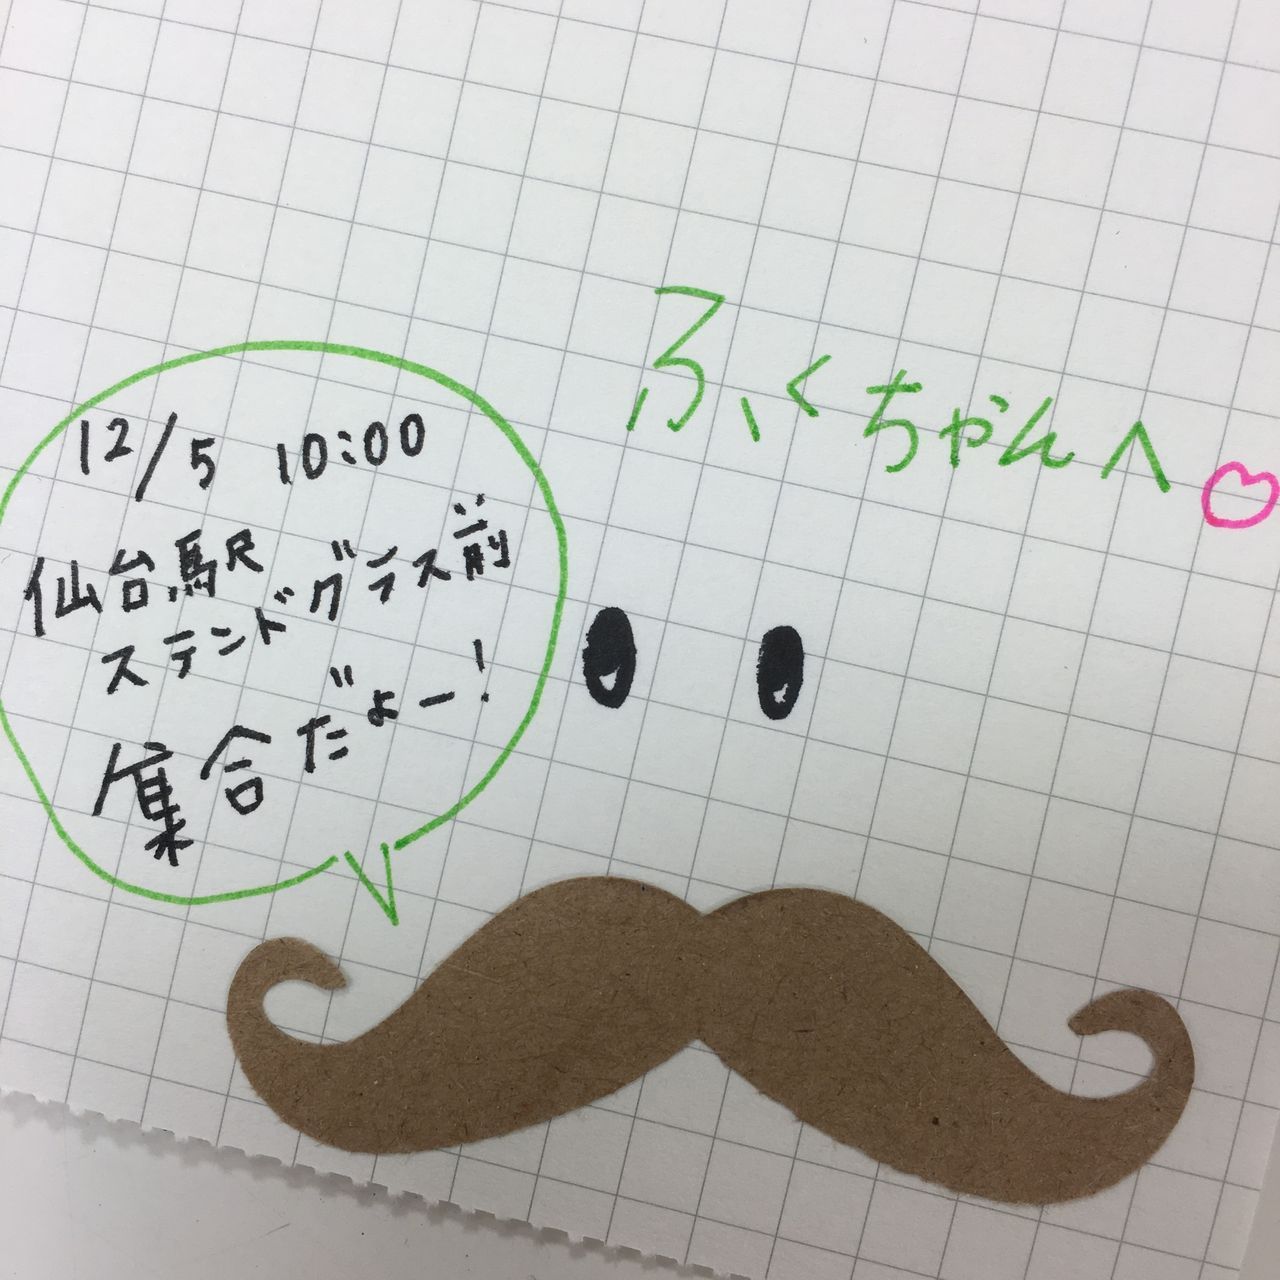 ふくちゃんへ♡
12/5 10:00
仙台駅
ステンドグラス前
集合だよー!